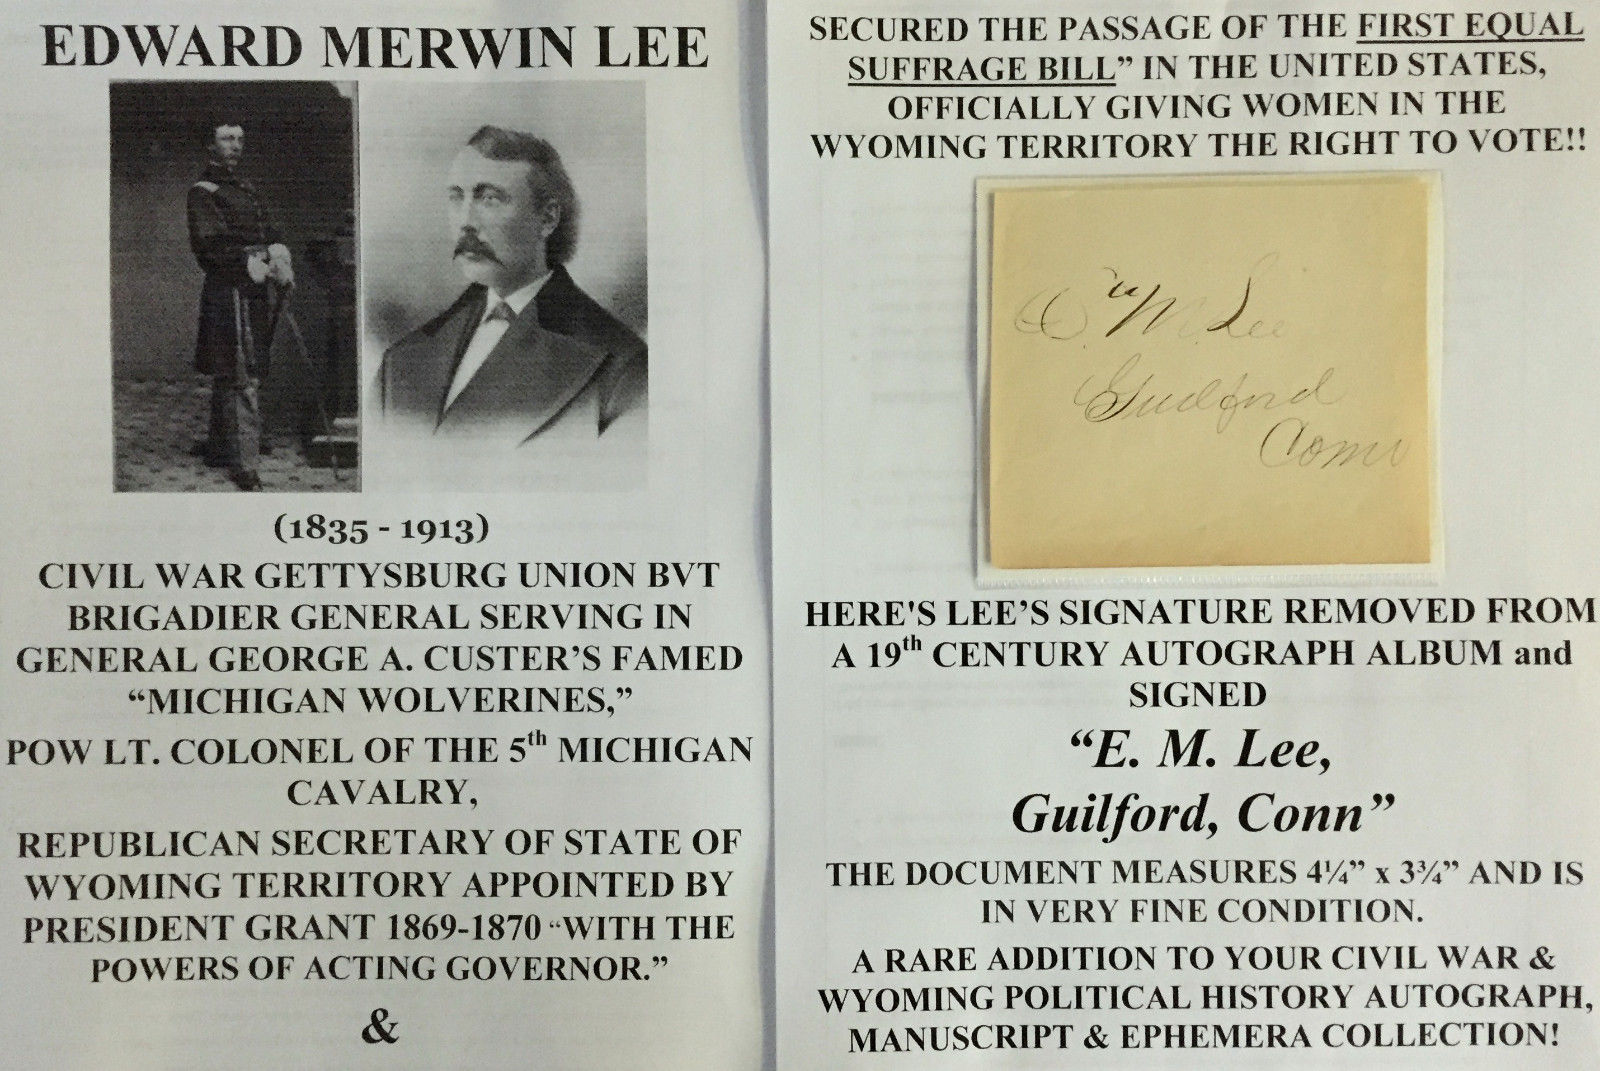 EDWARD MERWIN LEE
(1835 - 1913)
CIVIL WAR GETTYSBURG UNION BVT
BRIGADIER GENERAL SERVING IN
GENERAL GEORGE A. CUSTER'S FAMED
“MICHIGAN WOLVERINES,”
POW LT. COLONEL OF THE 5th MICHIGAN
CAVALRY,
REPUBLICAN SECRETARY OF STATE OF
WYOMING TERRITORY APPOINTED BY
PRESIDENT GRANT 1869-1870 “WITH THE
POWERS OF ACTING GOVERNOR.”
&
SECURED THE PASSAGE OF THE FIRST EQUAL
SUFFRAGE BILL” IN THE UNITED STATES,
OFFICIALLY GIVING WOMEN IN THE
WYOMING TERRITORY THE RIGHT TO VOTE!!
E. M. Lee
Guilford
Conn
HERE'S LEE'S SIGNATURE REMOVED FROM
A 19th CENTURY AUTOGRAPH ALBUM and
SIGNED
“E. M. Lee,
Guilford, Conn”
THE DOCUMENT MEASURES 4¼” x 3¾” AND IS
IN VERY FINE CONDITION.
A RARE ADDITION TO YOUR CIVIL WAR &
WYOMING POLITICAL HISTORY AUTOGRAPH,
MANUSCRIPT & EPHEMERA COLLECTION!